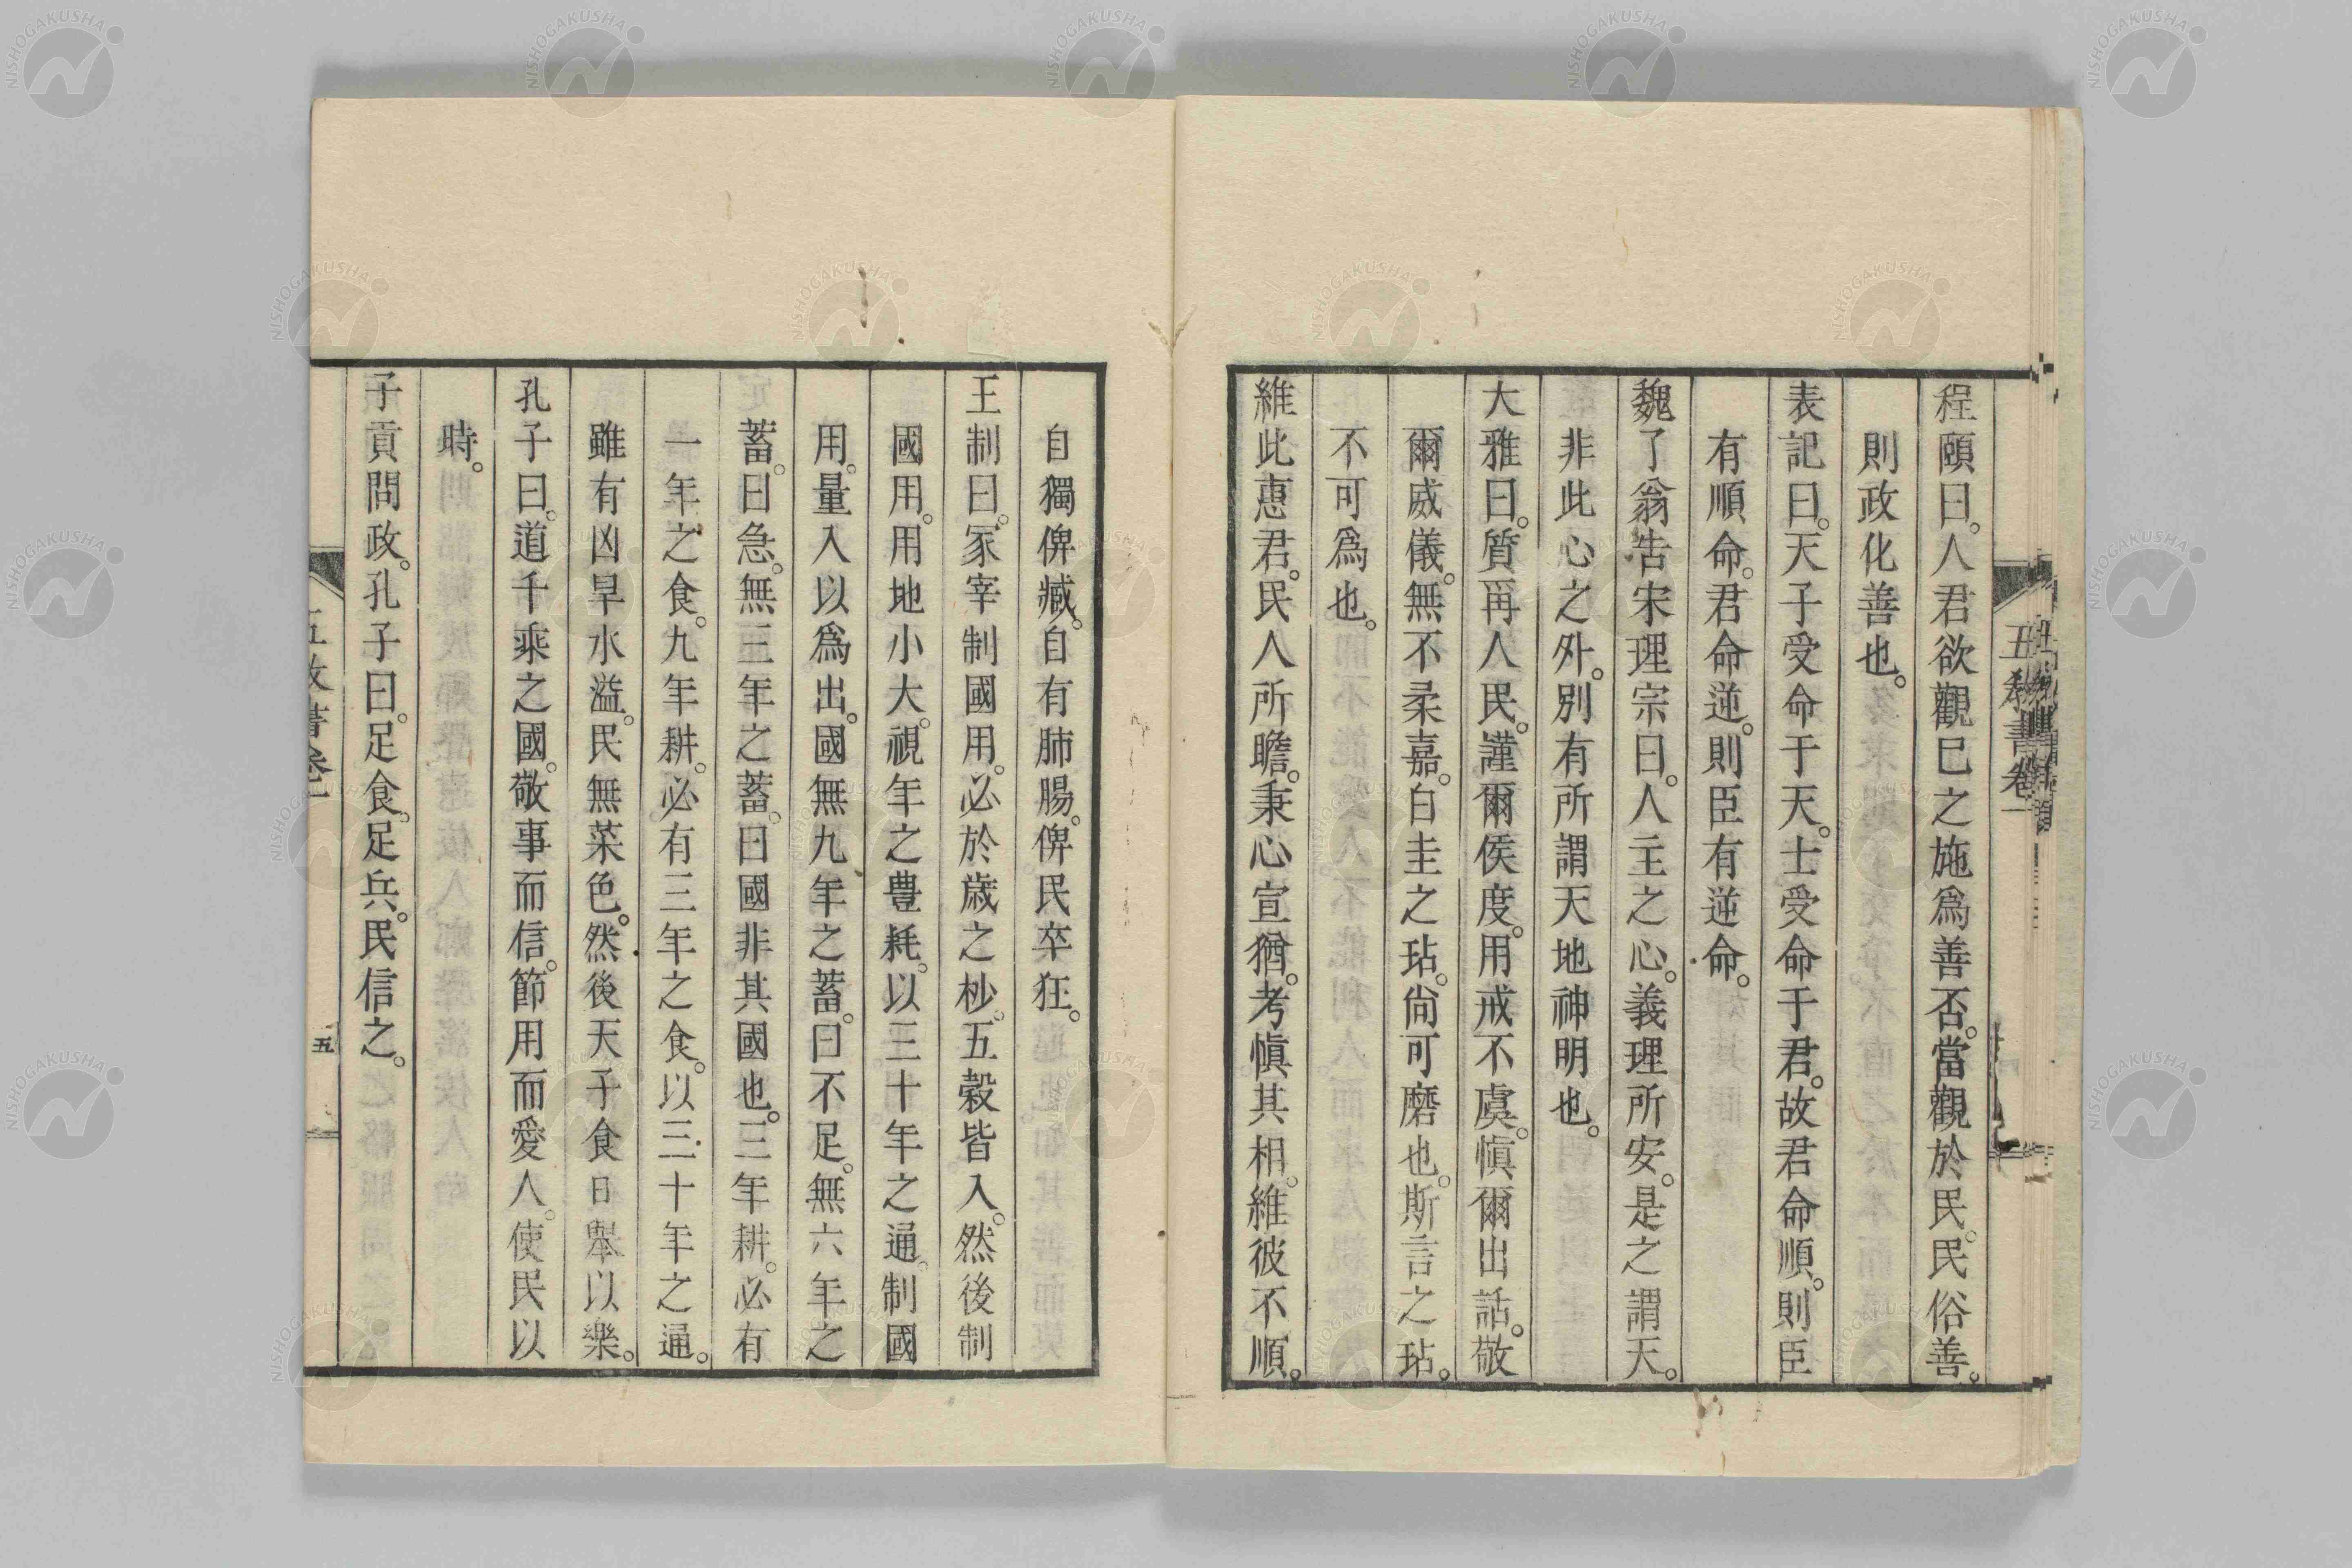 程頤曰。人君欲觀已之施爲善否。當觀於民。民俗善。
則政化善也。
表記曰。天子受命于天。士受命于君。故君命順。則臣
有順命。君命逆。則臣有逆命。
魏了翁告宋理宗曰。人主之心。義理所安。是之謂天。
非此心之外。別有所謂天地神明也。
大雅曰。質爾人民。謹爾侯度。用戒不虞。愼爾出話。敬
爾威儀。無不柔嘉。白圭之玷。尙可磨也。斯言之玷。
不可爲也。
維此惠君。民人所瞻。秉心宣猶。考愼其相。維彼不順。
自獨俾臧。自有肺腸。俾民卒狂。
王制曰。冢宰制國用。必於歲之杪。五穀皆入。然後制
國用。用地小大。視年之豊耗。以三十年之通。制國
用。量入以爲出。國無九年之蓄。曰不足。無六年之
蓄。曰急。無三年之蓄。曰國非其國也。三年耕。必有
一年之食。九年耕。必有三年之食。以三十年之通。
雖有凶旱水溢。民無菜色。然後天子食日舉以樂。
孔子曰。道千乘之國。敬事而信。節用而愛人。使民以
時。
子貢問政。孔子曰。足食。足兵。民信之。
五
NISHOGAKUSHA